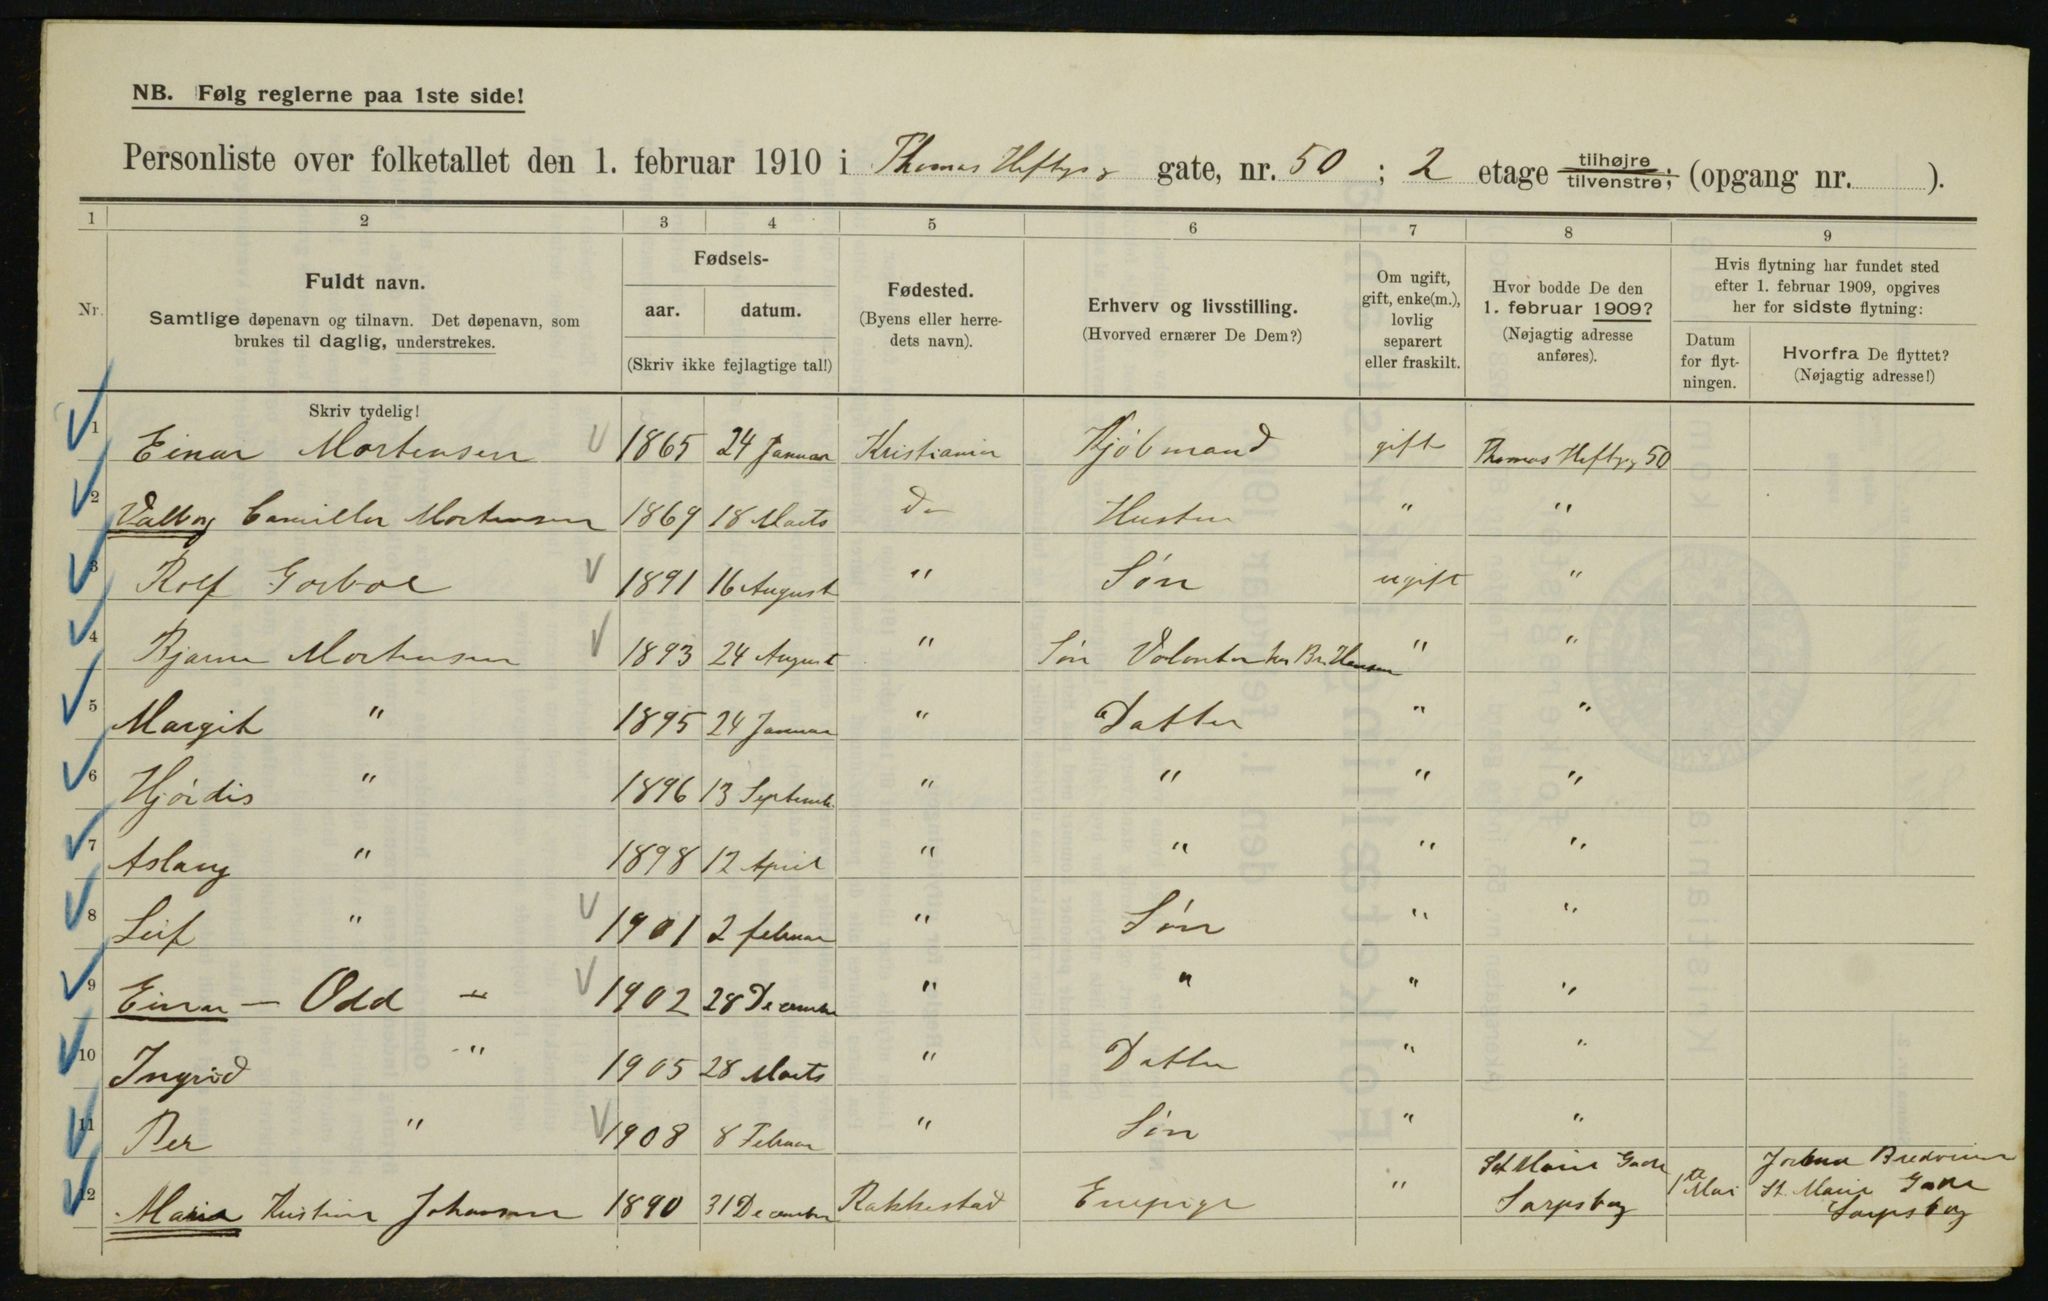 NB. Følg reglerne paa 1ste side!
Personliste over folketallet den 1. februar 1910 i Thomas Heftyes gate, nr. 50 ; 2 etage tilhøjre tilvenstre; (opgang nr. ).
1 2 3 4 5 6 7 8 9
Nr.
Fuldt navn.
Samtlige døpenavn og tilnavn. Det døpenavn, som
brukes til daglig, understrekes.
Fødsels-
aar. datum.
(Skriv ikke fejlagtige tal!)
Fødested.
(Byens eller herre-
dets navn).
Erhverv og livsstilling.
(Hvorved ernærer De Dem?)
Om ugift,
gift, enke(m.),
lovlig
separert
eller fraskilt.
Hvor bodde De den
1. februar 1909?
(Nøjagtig adresse
anføres).
Hvis flytning har fundet sted
efter 1. februar 1909, opgives
her for sidste flytning:
Datum
for flyt-
ningen.
Hvorfra De flyttet?
(Nøjagtig adresse!)
Skriv tydelig!
1 Einar Mortensen 1865 24 Januar Kristiania Kjöbmand gift Thomas Heftyg 50
2 Valborg Camilla Mortensen 1869 18 Marts do Hustru " "
3 Rolf 1891 16 August " Søn ugift "
4 Bjarne Mortensen 1893 24 August " Søn Volontør hos Br. Hansen " "
5 Margit " 1895 24 Januar " Datter " "
6 Hjördis " 1896 13 Septembr. " " " "
7 Aslaug " 1898 12 April " " " "
8 Leif " 1901 2 februar " Søn " "
9 Einar - Odd " 1902 28 December " " " "
10 Ingrid " 1905 28 Marts " Datter " "
11 Per " 1908 8 Februar " Søn " "
12 Maria Kristine Johansen 1890 31 December Rakkestad Enepige " St Marie Gade Sarpsborg 1ste Mai St. Marie Gade Sarpsborg